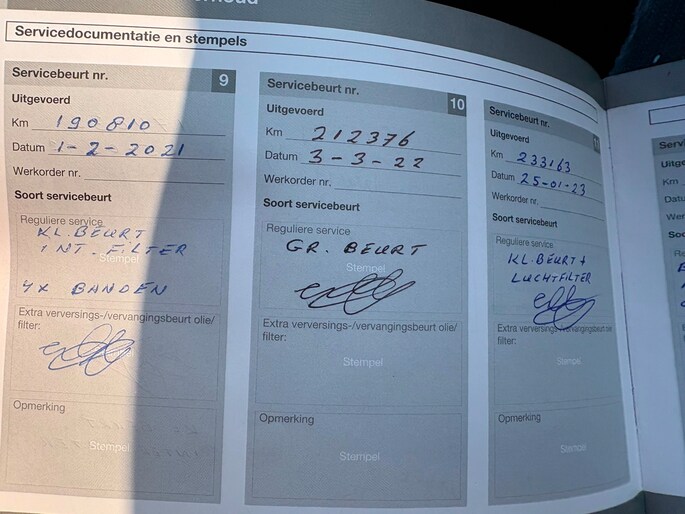 Servicedocumentatie en stempels
Servicebeurt nr. 9
Uitgevoerd
Km 190810
Datum 1-2-2021
Werkorder nr.
Soort servicebeurt
Reguliere service
KL. BEURT
INT. FILTER
Stempel
4x BANDEN
Extra verversings-/vervangingsbeurt olie/
filter:
Opmerking
Stempel
Servicebeurt nr. 10
Uitgevoerd
Km 212376
Datum 3-3-22
Werkorder nr.
Soort servicebeurt
Reguliere service
GR. BEURT
Stempel
Extra verversings-/vervangingsbeurt olie/
filter:
Stempel
Opmerking
Stempel
Servicebeurt nr.
Uitgevoerd
Km 233163
Datum 25-01-23
Werkorder nr.
Soort servicebeurt
Reguliere service
KL. BEURT +
LUCHTFILTER
Extra verversings-/vervangingsbeurt olie
filter:
Stempel
Opmerking
Stempel